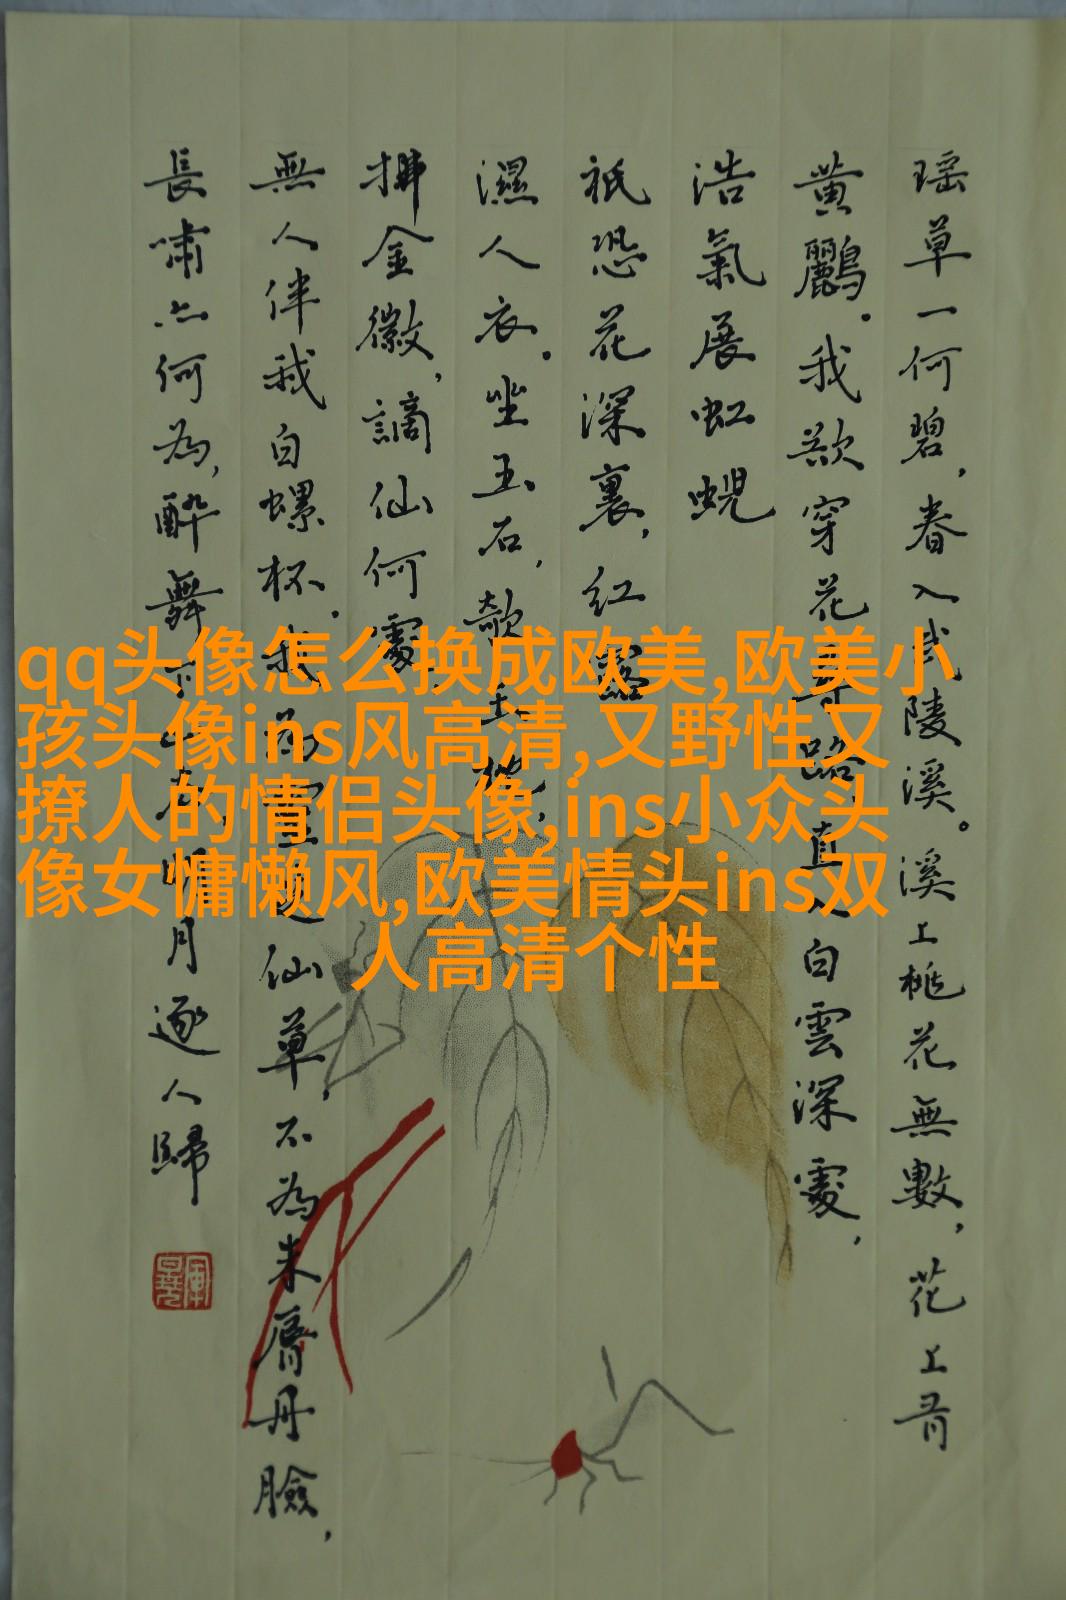 瑶草一何碧，春入武陵溪。溪上桃花無數，花上有
黄鸝。我欲穿花尋路，直入白雲深處，
浩氣展虹蜺
祇恐花深裏，紅露
濕人衣。坐玉石，欹玉枕，
拂金徽，謫仙何處，
無人伴我白螺杯。我為靈芝仙草，不為朱唇丹臉，
長嘯亦何為，醉舞下山去，明月逐人歸
qq头像怎么换成欧美,欧美小
孩头像ins风高清,又野性又
撩人的情侣头像,ins小众头
像女慵懒风,欧美情头ins双
人高清个性